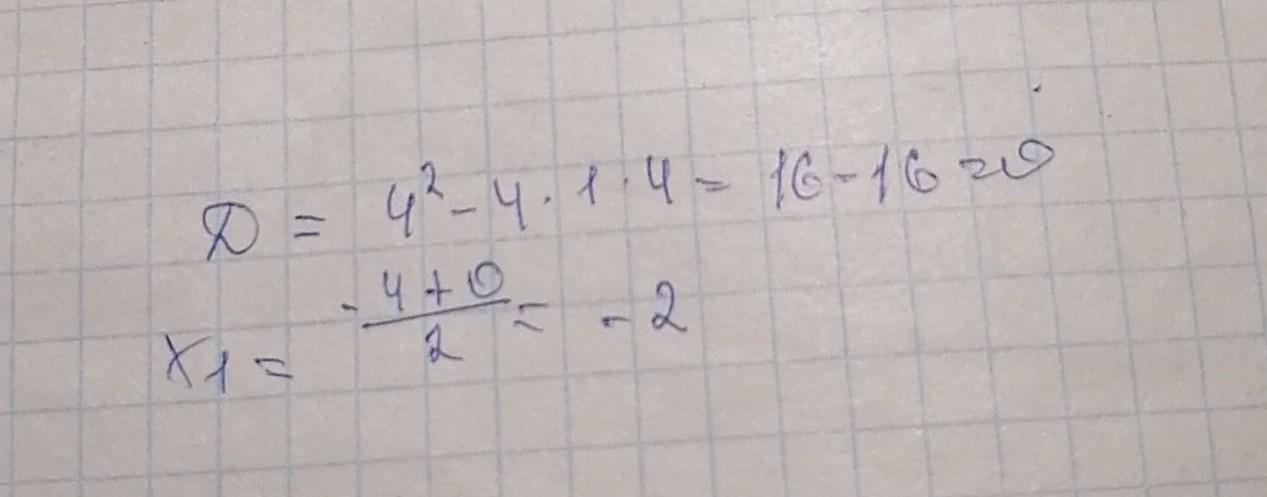 D = 4² - 4 · 1 · 4 = 16 - 16 = 0
x1 = (-4 + 0)/2 = -2